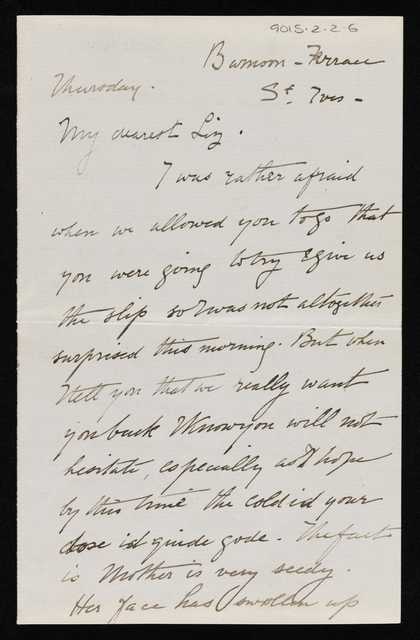 9015-2-2-6
Barnoon - Terrace
Thursday.
St. Ives -
My dearest Liz.
I was rather afraid
when we allowed you to go that
you were going to try & give us
the slip so I was not altogether
surprised this morning. But when
I tell you that we really want
you back I know you will not
hesitate, especially as I hope
by this time the cold id your
dose id quide gode. The fact
is Mother is very seedy.
Her face has swollen up